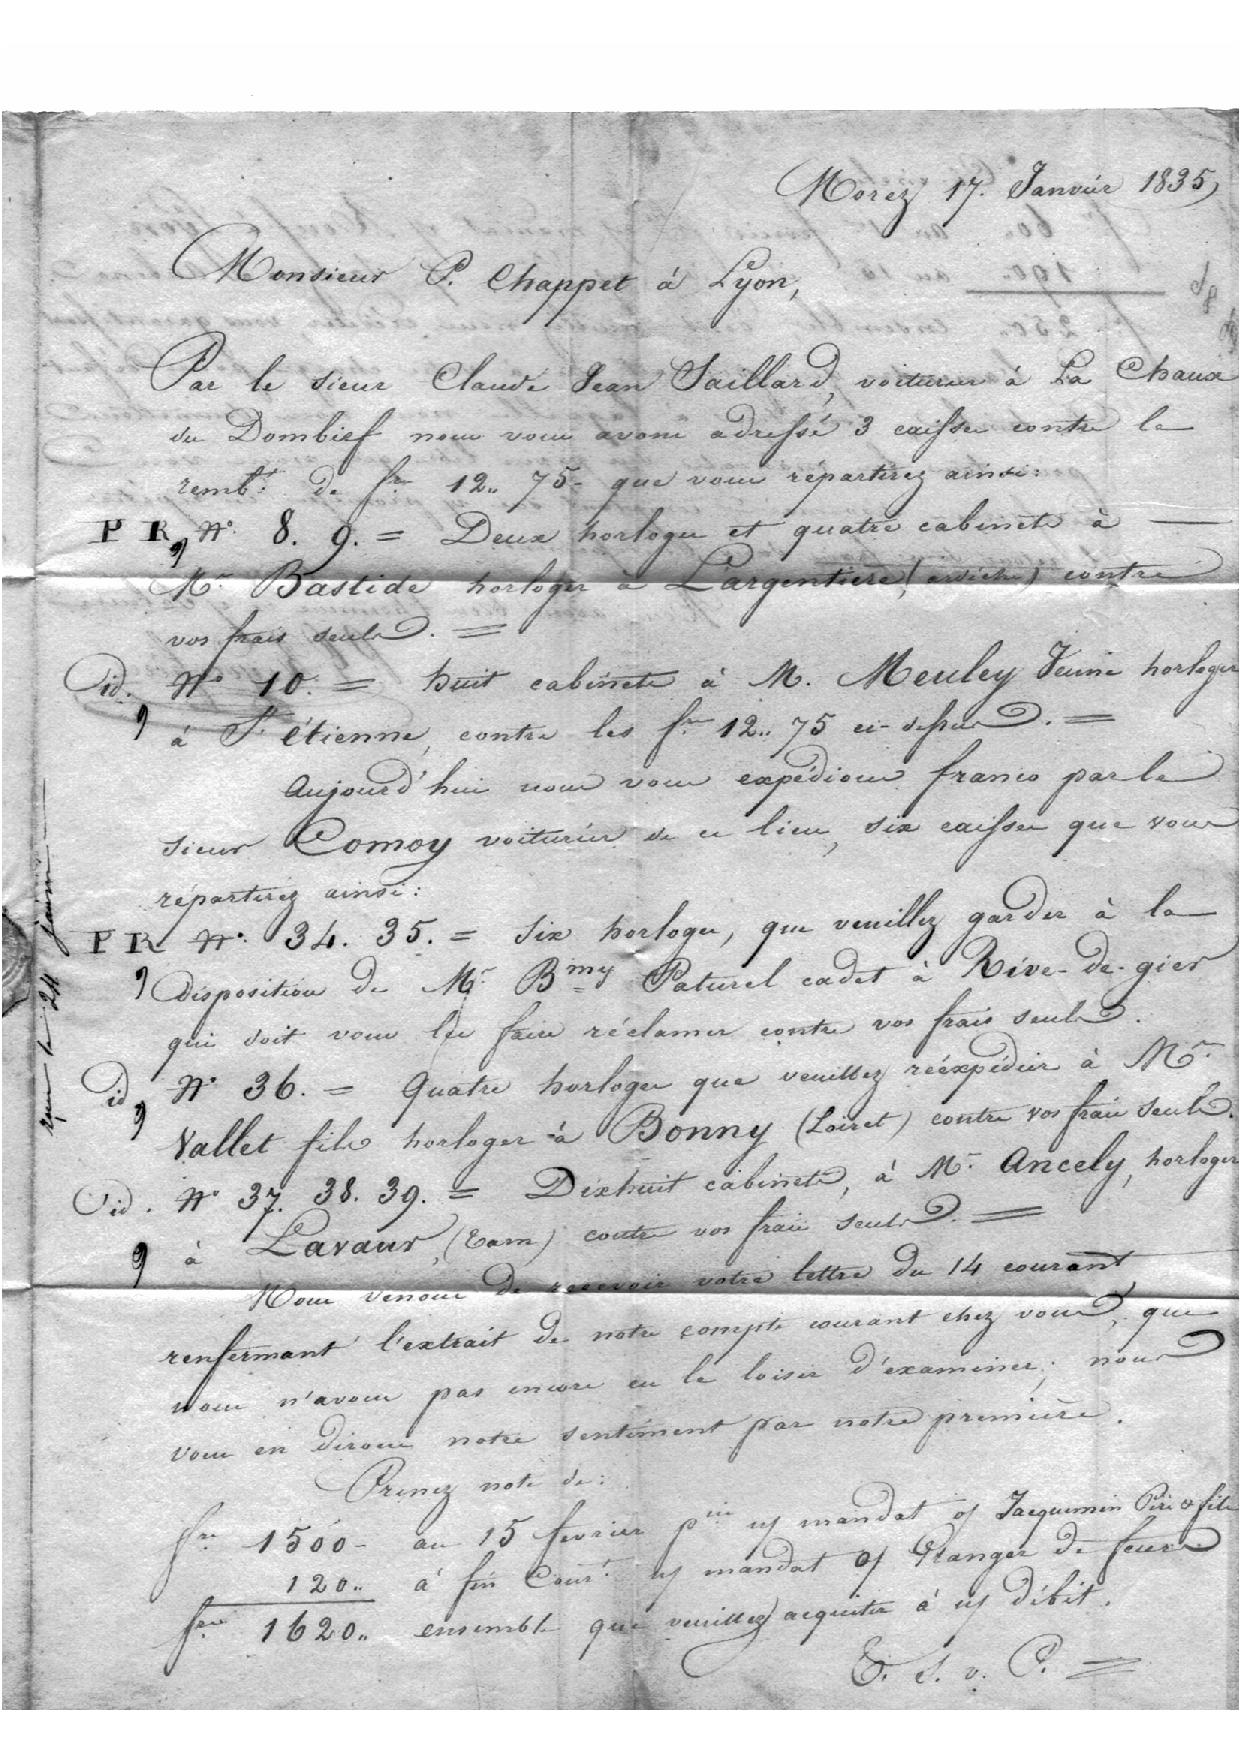 Morez 17. Janvier 1835,
Monsieur P. Chappet à Lyon,
Par le sieur Claude Jean Saillard, voiturier à La Chaux
du Dombief nous vous avons adressé 3 caisses contre le
rembt. de frs. 12.. 75- que vous répartirez ainsi:
P R, No. 8. 9. = Deux horloges et quatre cabinets à —
Mr. Bastide horloger à Largentière, (ardèche) contre
vos frais seuls. =
id. No. 10. = huit cabinets à M. Meuley Jeune horloger
à St. étienne, contre les frs. 12.. 75 ci-dessus. =
Aujourd'hui nous vous expédions franco par le
sieur Comoy voiturier de ce lieu, six caisses que vous
répartirez ainsi:
P R No. 34. 35. = Six horloges, que veuillez garder à la
Disposition de Mr. Bmy Paturel cadet à Rive-de-gier
qui doit vous les faire réclamer contre vos frais seuls.
id, No. 36. = Quatre horloges que veuillez réexpédier à Mr.
Vallet fils horloger à Bonny (Loiret) contre vos frais seuls.
id. No. 37. 38. 39. = Dixhuit cabinets, à Mr. Ancely, horloger
à Lavaur, (Tarn) contre vos frais seuls. =
Nous venons de recevoir votre lettre du 14 courant
renfermant l'extrait de notre compte courant chez vous, que
nous n'avons pas encore eu le loisir d'examiner; nous
vous en dirons notre sentiment par notre première.
Prenez note de:
frs. 1500- au 15 fevrier pin n/ mandat o/ Jacquemin Père & fils
120.. à fin Court. n/ mandat o/ Granger de feurs
frs. 1620.. ensemble que veuillez acquiter à n/ débit.
T. S. v. P. =
reçu le 24 janvier